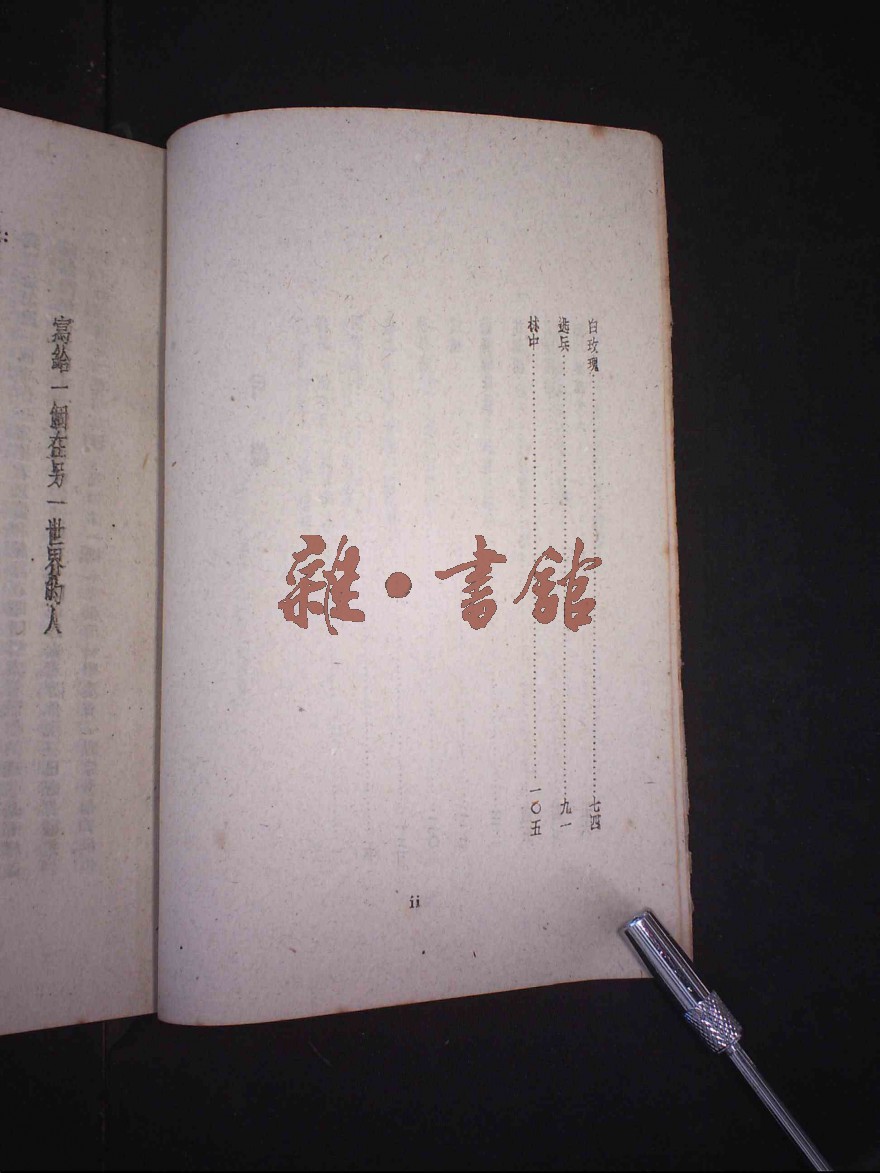 白玫瑰……………………七四
逃兵……………………九一
林中……………………一〇五
ii
寫給一個在另一世界的人
雜·書館